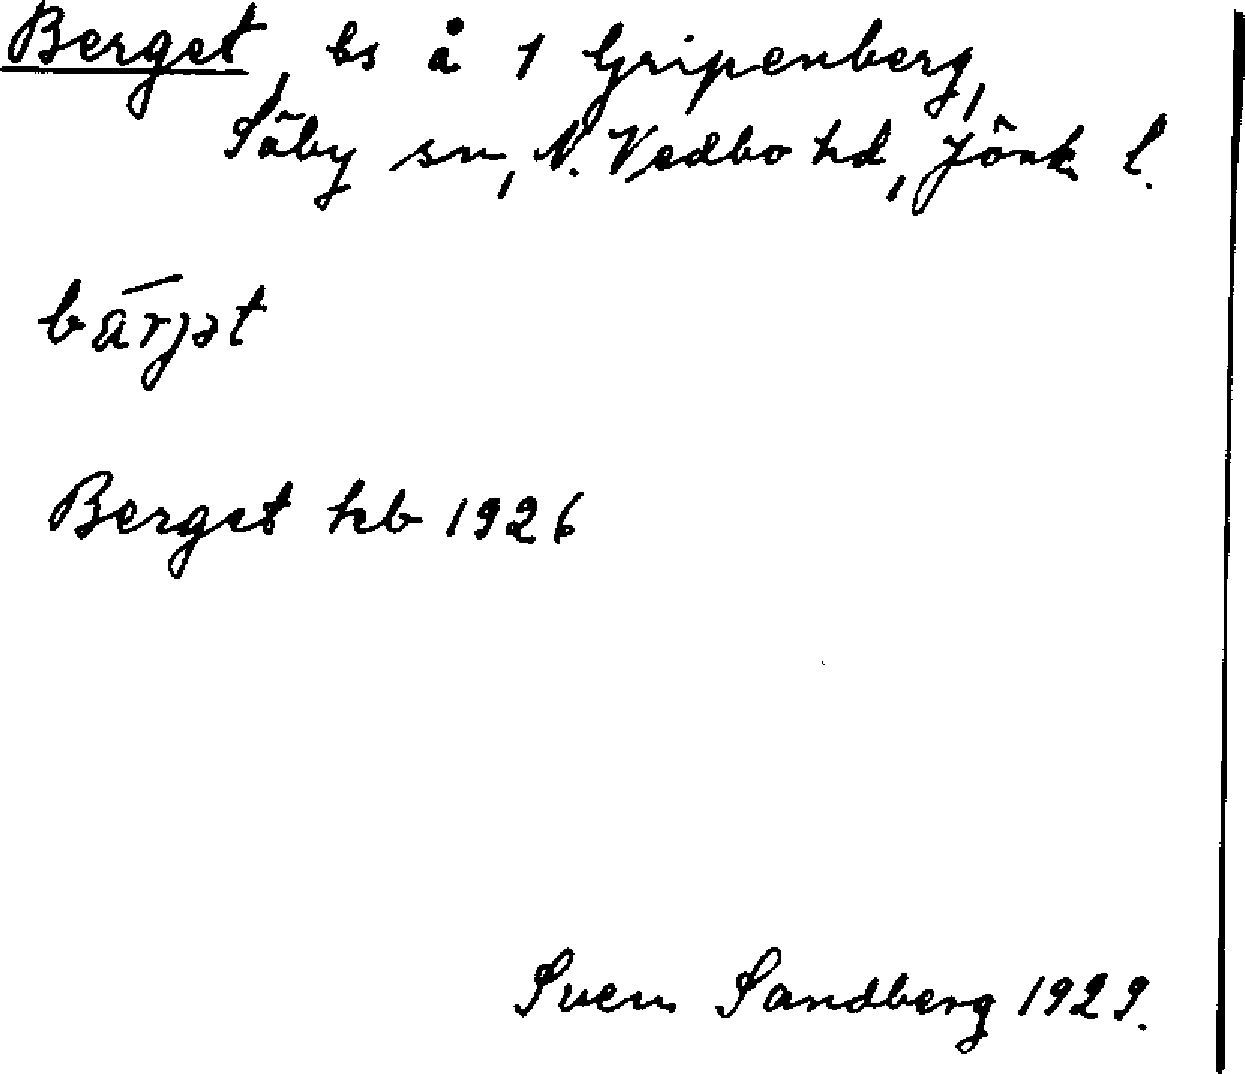 Berget, bs å 1 Gripenberg,
Säby sn, N. Vedbo hd, Jönk. l.
bärjət
Berget hb 1926
Sven Sandberg 1929.